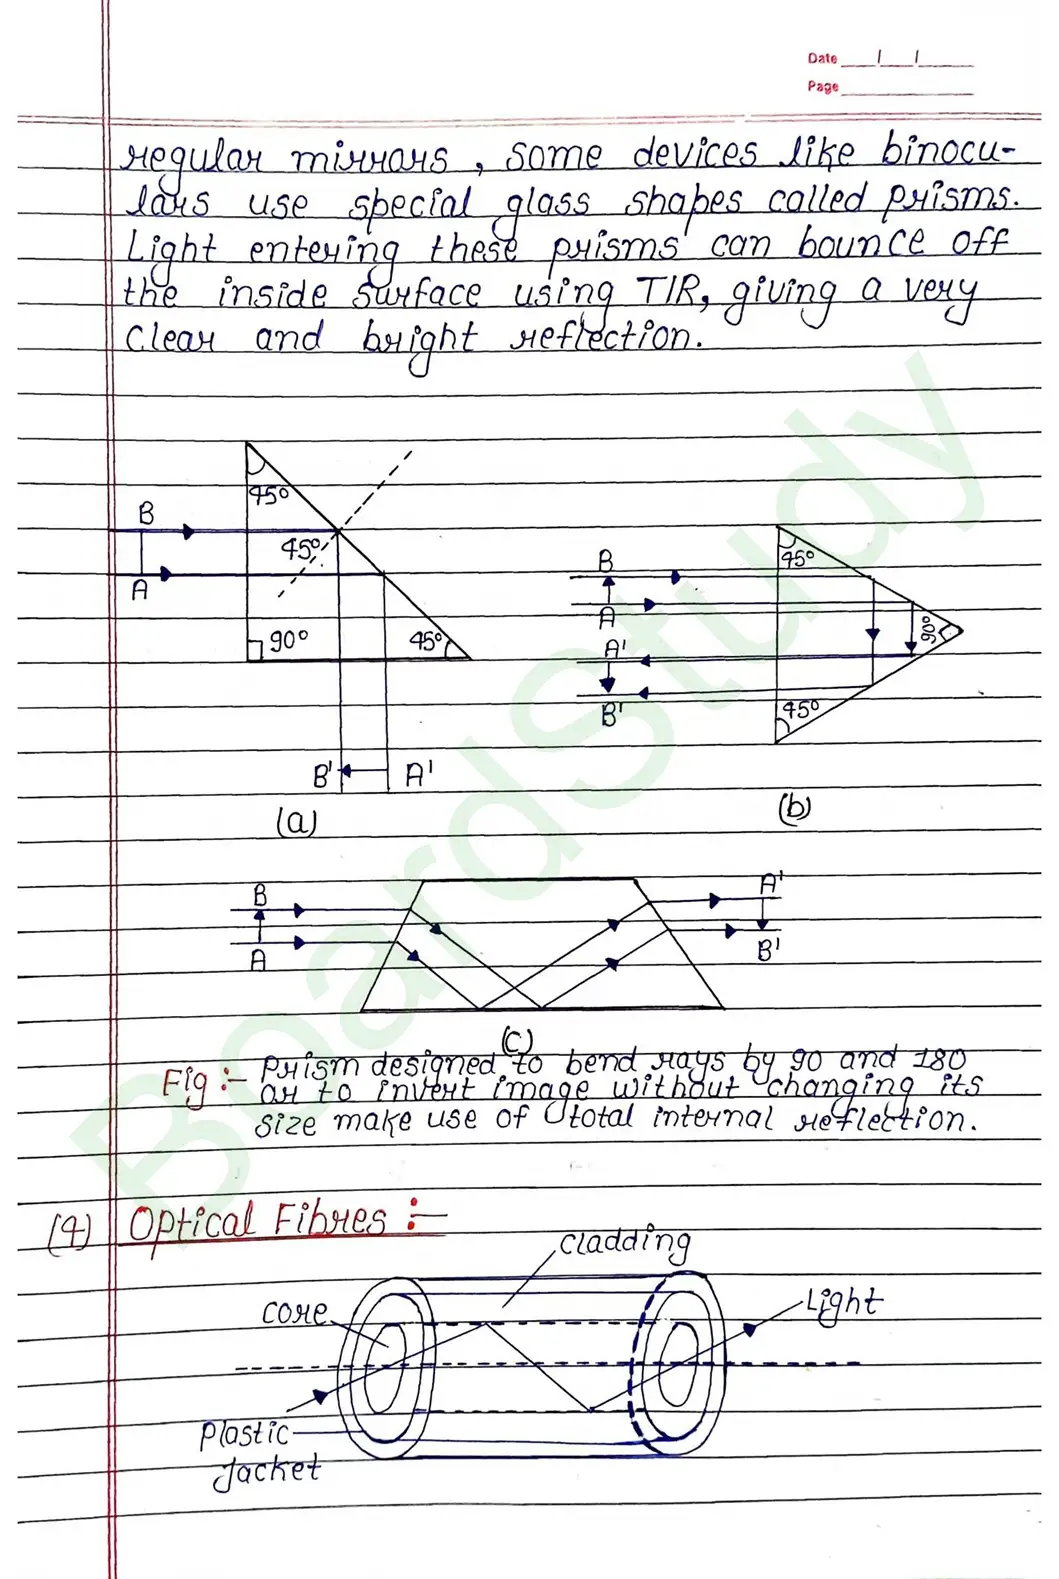 Date / /
Page
regular mirrors, some devices like binocu-
lars use special glass shapes called prisms.
Light entering these prisms can bounce off
the inside surface using TIR, giving a very
clear and bright reflection.
45°
B
45°
A
90°
45°
B' A'
(a)
B
45°
A
A'
90°
B'
45°
(b)
B
A'
A
B'
(c)
Fig :- Prism designed to bend rays by 90 and 180
or to invert image without changing its
size make use of total internal reflection.
(4) Optical Fibres :-
cladding
core
Light
Plastic
Jacket
BoardStudy